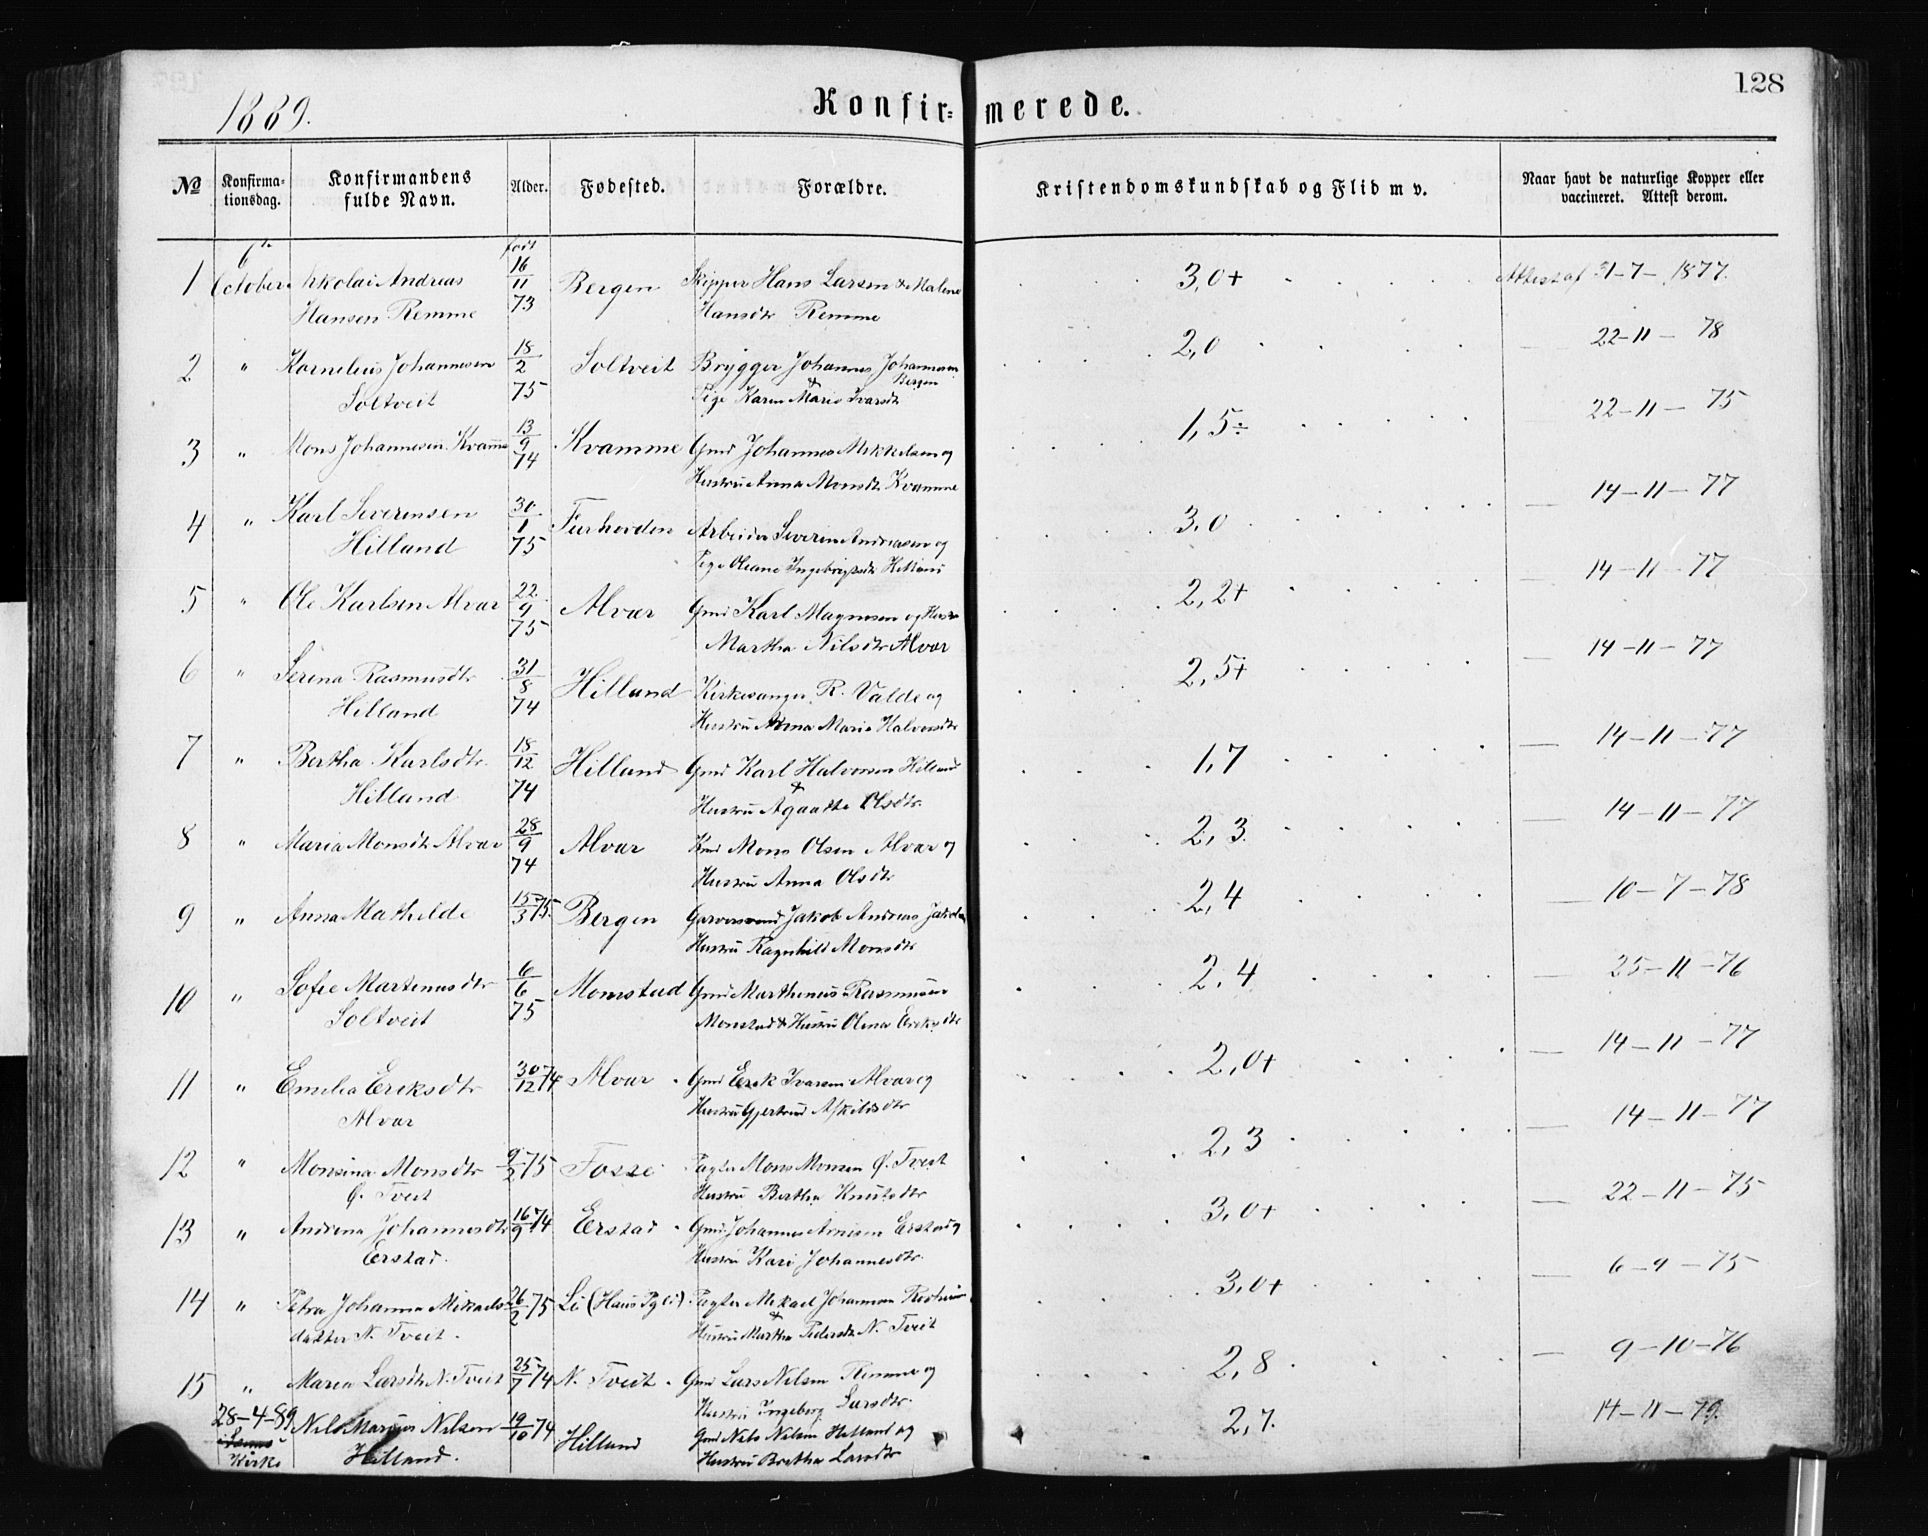 128
1889.
Konfir= merede.
№ Konfirma=tionsdag. Konfirmandens fulde Navn. Alder. Fødested. Forældre. Kristendomskundskab og Flid m v. Naar havt de naturlige Kopper eller vaccineret. Attest derom.
6te født
1 October Nikolai Andreas 16/11 73 Bergen Skipper Hans Larsen & Malene 3,0+ Attest af 31-7-1877.
Hansen Remme Hansdtr Remme
2 " Kornelius Johannesen 18/2 75 Soltveit Brygger Johannes Johannesen Bergen 2,0 22-11-78
Soltveit & Pige Karen Marie Ivarsdtr
3 " Mons Johannesen Kvamme 13/9 74 Kvamme Gmd Johannes Mikkelsen og 1,5÷ 22-11-75
Hustru Anna Monsdtr Kvamme
4 " Karl Severinsen 30/1 75 Arbeider Severin Andreasen og 3,0 14-11-77
Hilland Pige Oleane Hilland
5 " Ole Karlsen Alvær 22/9 75 Alvær Gmd Karl Magnesen og Hustru 2,2+ 14-11-77
Martha Nilsdtr Alvær
6 " Serina Rasmusdtr 31/8 74 Hilland Kirkesanger R. Valde og 2,5+ 14-11-77
Hilland Hustru Anna Marie Halvorsdtr
7 " Bertha Karlsdtr. 18/12 74 Hilland Gmd Karl Halvorsen Hilland 1,7 14-11-77
Hilland & Hustru Agaathe Olsdtr.
8 " Maria Monsdtr Alvær 28/9 74 Alvær Mons Olsen Alvær og 2,3. 14-11-77
Hustru Anna Olsdtr
9 " Anna Mathilde 15/3 75. Bergen Garversvend Jakob Andreas 2,4 10-7-78
Hustru Ragnhild Monsdtr
10 " Sofie Martinusdtr 6/6 75 Monstad Gmd Marthinus Rasmusen 2,4 25-11-76
Soltveit Monstad & Hustru Olena Eriksdtr
11 " Emelia Eriksdtr 30/12 74 Alvær Gmd Erik Ivarsen Alvær og 2,0+ 14-11-77
Alvær Hustru Gjertrud Askildsdtr
12 " Monsina Monsdtr 9/2 75 Fosse Pagter Mons Monsen Ø. Tveit 2,3 14-11-77
Ø. Tveit Hustru Bertha Knutsdtr
13 " Andrina Johannesdtr 16/9 74 Erstad Gmd. Johannes Arnesen Erstad og 3,0+ 22-11-75
Erstad. Hustru Kari Johannesdtr.
14 " Petra Johanna Mikaels- 26/2 75 Lii (Haus Pgld). Pagter Mikael Johannesen 3,0+ 6-9-75
datter N. Tveit. & Hustru Martha Pedersdtr N. Tveit
15 " Maren Larsdtr N. Tveit 25/7 74 N. Tveit. Gmd Lars Nilsen Remme og 2,8 9-10-76
Hustru Ingeborg Larsdtr.
28-4-89 Nils Marius Nilsen 19/10 74 Hilland Gmd Nils Nilsen Hilland og 2,7. 14-11-79.
Kirke Hilland. Hustru Brethe Larsdtr